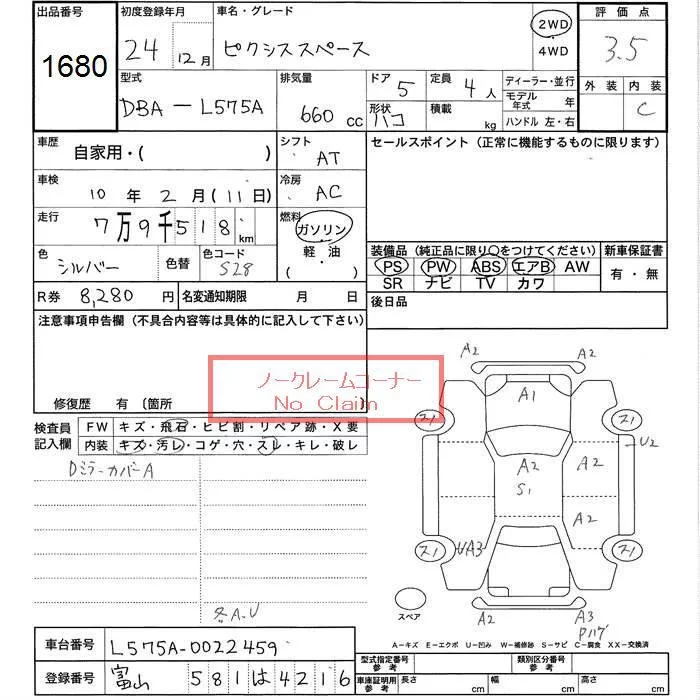 出品番号
1680
初度登録年月
24 12月
車名・グレード
ピクシススペース
2WD
4WD
評価点
3.5
型式
DBA-L575A
排気量
660 cc
ドア 5
形状 ハコ
定員 4人
積載 kg
ディーラー・並行
モデル年式 年
ハンドル 左・右
外装 内装
C
車歴 自家用・( )
シフト AT
車検 10年 2月(11日)
冷房 AC
走行 7万9千518km
燃料 ガソリン・軽・油・( )
色 シルバー 色替
色コード S28
R券 8,280円 名変通知期限 月 日
セールスポイント(正常に機能するものに限ります)
装備品(純正品に限り○をつけてください)
PS PW ABS エアB AW
SR ナビ TV カワ
新車保証書
有・無
後日品
注意事項申告欄(不具合内容等は具体的に記入して下さい)
ノークレームコーナー
No Claim
修復歴 有(箇所 )
検査員記入欄
FW キズ・飛石・ヒビ割・リペア跡・X要
内装 キズ・汚レ・コゲ・穴・スレ・キレ・破レ
Dミラーカバー A
各A.U
A2 A2
A1
ス1 ス1
U2
A2 A2
S1
A2
ス1 UA3 ス1
スペア
A2 A3
A-キズ E-エクボ U-凹み W-補修跡 S-サビ C-腐食 XX-交換済
車台番号 L575A-0022459
登録番号 富山 581 は 4216
型式指定番号参考
類別区分番号参考
車庫証明用参考 長さ cm 幅 cm 高さ cm